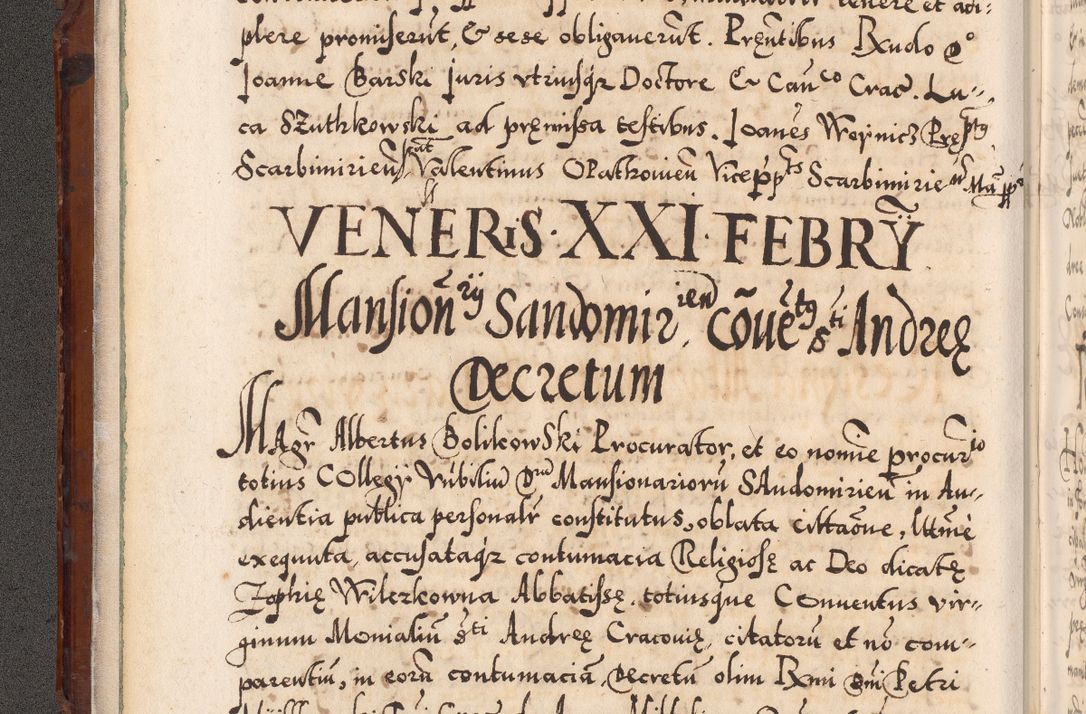 plere promiserūt, & sese obligauerūt. Prēntibus Rxndo D°
Joanne Barski Juris vtriusqʒ Doctore & Cānco Crac. Lu-
ca Szuthkowski ad pręmissa testibus. Joanēs Woynicz Pręptg
Scarbimirień Valentinus Opathouień Vicepp̄ts Scarbimirień
VENERIS · XXI · FEBRȲ
Mansionrij Sandomirien cōuētg sti Andreę
Decretum
Magr Albertus Bolikowski Procurator, et eo nomīe procurio
totius Collegij Vnbiliū Dnū Mansionariorū Sandomirień in Au-
dientia publica personalr constitutus, oblata cittaōne, lttmē
exequuta, accusataqʒ contumacia Religiosę ac Deo dicatę
Zophię Wilczkowna Abbatissę, totiusque Conuentus vir-
ginum Monialiū sti Andreę Cracouię, citatorū et nō com-
parentiū, in eorū contumaciā, Decretū olim Rxmi Dni Petri